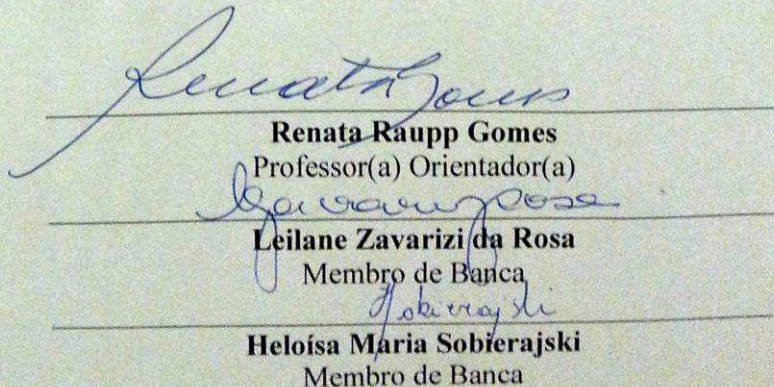 Renata Gomes
Renata Raupp Gomes
Professor(a) Orientador(a)
Leilane Zavarizi da Rosa
Membro de Banca
Sobierajski
Heloísa Maria Sobierajski
Membro de Banca